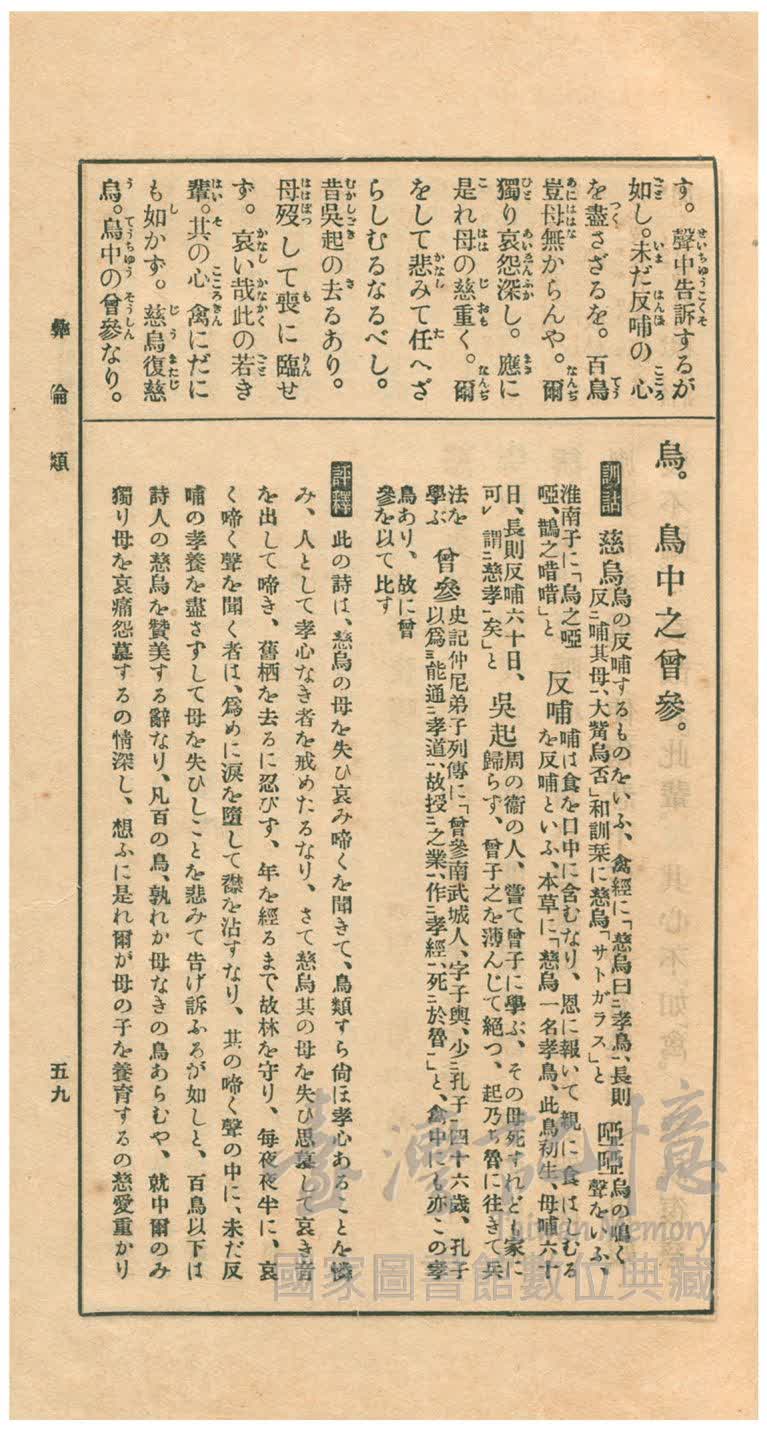 す。聲中告訴するが
如し。未だ反哺の心
を盡さざるを。百鳥
豈母無からんや。爾
獨り哀怨深し。應に
是れ母の慈重く。爾
をして悲みて任へざ
らしむるなるべし。
昔吳起の去るあり。
母歿して喪に臨せ
ず。哀い哉此の若き
輩。其の心禽にだに
も如かず。慈烏復慈
烏。鳥中の曾參なり。
烏。鳥中之曾參。
訓詁 慈烏 烏の反哺するものをいふ、禽經に「慈烏曰ニ孝鳥一、長則
反ニ哺其母一、大觜烏否」和訓栞に慈烏「サトガラス」と 啞啞 烏の鳴く
聲をいふ、
淮南子に「烏之啞
啞、鵲之唶唶」と 反哺 哺は食を口中に含むなり、恩に報いて親に食はしむる
を反哺といふ、本草に「慈烏一名孝鳥、此鳥初生、母哺六十
日、長則反哺六十日、
可レ謂ニ慈孝一矣」と 吳起 周の衞の人、嘗て曾子に學ぶ、その母死すれども家に
歸らず、曾子之を薄んじて絕つ、起乃ち魯に往きて兵
法を
學ぶ 曾參 史記仲尼弟子列傳に「曾參南武城人、字子輿、少ニ孔子一四十六歲、孔子
以爲ミ能通ニ孝道一、故授ニ之業一、作ニ孝經一、死ニ於魯一」と、禽中にも亦この孝
鳥あり、故に曾
參を以て比す
評釋 此の詩は、慈烏の母を失ひ哀み啼くを聞きて、鳥類すら尙ほ孝心あることを憐
み、人として孝心なき者を戒めたるなり、さて慈烏其の母を失ひ思慕して哀き音
を出して啼き、舊栖を去るに忍びす、年を經るまで故林を守り、每夜夜半に、哀
く啼く聲を聞く者は、爲めに淚を墮して襟を沾すなり、其の啼く聲の中に、未だ反
哺の孝養を盡さずして母を失ひしことを悲みて告げ訴ふるが如しと、百鳥以下は
詩人の慈烏を贊美する辭なり、凡百の鳥、孰れか母なきの鳥あらむや、就中爾のみ
獨り母を哀痛怨慕するの情深し、想ふに是れ爾が母の子を養育するの慈愛重かり
彝倫類
五九
臺灣記憶
Taiwan Memory
國家圖書館數位典藏